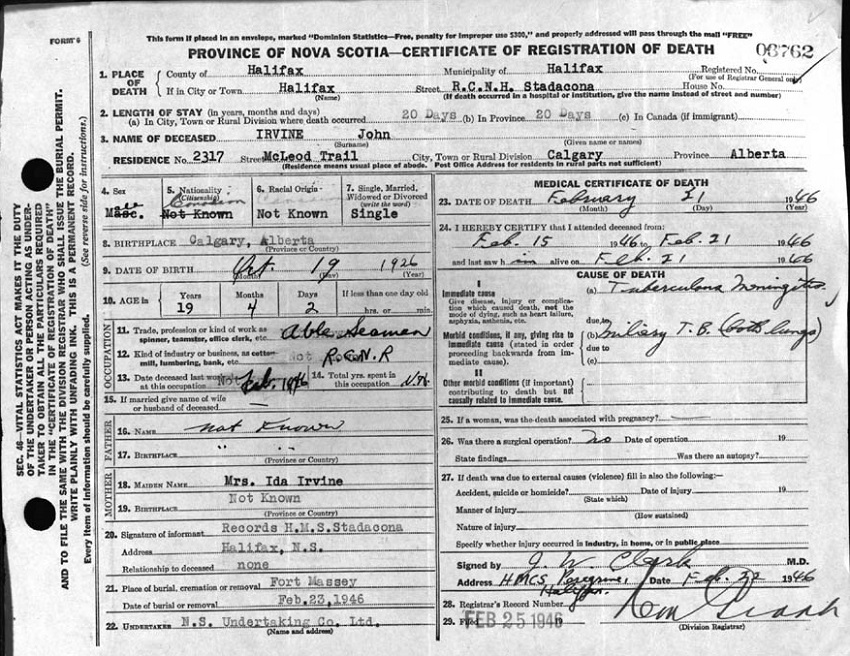 This form if placed in an envelope, marked "Dominion Statistics—Free, penalty for improper use $300," and properly addressed will pass through the mail "FREE"
FORM 6
PROVINCE OF NOVA SCOTIA—CERTIFICATE OF REGISTRATION OF DEATH
06762
1. PLACE OF DEATH
County of Halifax Municipality of Halifax Registered No.
(For use of Registrar General only)
If in City or Town Halifax Street R.C.N.H. Stadacona House No.
(Name) (If death occurred in a hospital or institution, give the name instead of street and number)
2. LENGTH OF STAY (in years, months and days)
(a) In City, Town or Rural Division where death occurred 20 Days (b) In Province 20 Days (c) In Canada (if immigrant)
3. NAME OF DECEASED IRVINE John
(Surname) (Given name or names)
RESIDENCE No. 2317 Street McLeod Trail City, Town or Rural Division Calgary Province Alberta
(Residence means usual place of abode. Post Office Address for residents in rural parts not sufficient)
SEC. 46—VITAL STATISTICS ACT MAKES IT THE DUTY
OF THE UNDERTAKER OR PERSON ACTING AS UNDER-
TAKER TO OBTAIN ALL THE PARTICULARS REQUIRED
IN THE "CERTIFICATE OF REGISTRATION OF DEATH"
AND TO FILE THE SAME WITH THE DIVISION REGISTRAR WHO SHALL ISSUE THE BURIAL PERMIT.
WRITE PLAINLY WITH UNFADING INK. THIS IS A PERMANENT RECORD.
Every item of information should be carefully supplied. (See reverse side for instructions.)
4. Sex
Masc.
5. Nationality (Citizenship)
Canadian
Not Known
6. Racial Origin
Not Known
7. Single, Married, Widowed or Divorced (write the word)
Single
8. BIRTHPLACE Calgary, Alberta
(Province or Country)
9. DATE OF BIRTH Oct. 19 1926
(Month) (Day) (Year)
10. AGE in Years Months Days If less than one day old
19 4 2 hrs. or min.
OCCUPATION
11. Trade, profession or kind of work as spinner, teamster, office clerk, etc. Able Seaman
12. Kind of industry or business, as cotton mill, lumbering, bank, etc. Not R.C.N.R
13. Date deceased last worked at this occupation Not Feb. 1946 14. Total yrs. spent in this occupation N.K.
15. If married give name of wife or husband of deceased —
FATHER
16. NAME not Known
17. BIRTHPLACE " "
(Province or Country)
MOTHER
18. MAIDEN NAME Mrs. Ida Irvine
19. BIRTHPLACE Not Known
(Province or Country)
20. Signature of informant Records H.M.S.Stadacona
Address Halifax, N.S.
Relationship to deceased none
21. Place of burial, cremation or removal Fort Massey
Date of burial or removal Feb.23,1946
22. UNDERTAKER N.S. Undertaking Co. Ltd.
(Name and address)
MEDICAL CERTIFICATE OF DEATH
23. DATE OF DEATH February 21 1946
(Month) (Day) (Year)
24. I HEREBY CERTIFY that I attended deceased from:
Feb. 15 1946 to Feb. 21 1946
and last saw h im alive on Feb. 21 1946
CAUSE OF DEATH
I
Immediate cause
Give disease, injury or complication which caused death, not the mode of dying, such as heart failure, asphyxia, asthenia, etc.
(a) Tuberculous Meningitis
due to
Morbid conditions, if any, giving rise to immediate cause (stated in order proceeding backwards from immediate cause).
(b) miliary T.B. (both lungs)
due to
(c)
II
Other morbid conditions (if important) contributing to death but not causally related to immediate cause.
25. If a woman, was the death associated with pregnancy? —
26. Was there a surgical operation? no Date of operation 19
State findings Was there an autopsy?
27. If death was due to external causes (violence) fill in also the following:—
Accident, suicide or homicide? Date of injury 19
(State which)
Manner of injury
(How sustained)
Nature of injury
Specify whether injury occurred in industry, in home, or in public place
Signed by J. W. Clark M.D.
Address HMCS Peregrine, Halifax. Date Feb. 22 1946
28. Registrar's Record Number
29. Filed FEB 25 1946 19
(Division Registrar)